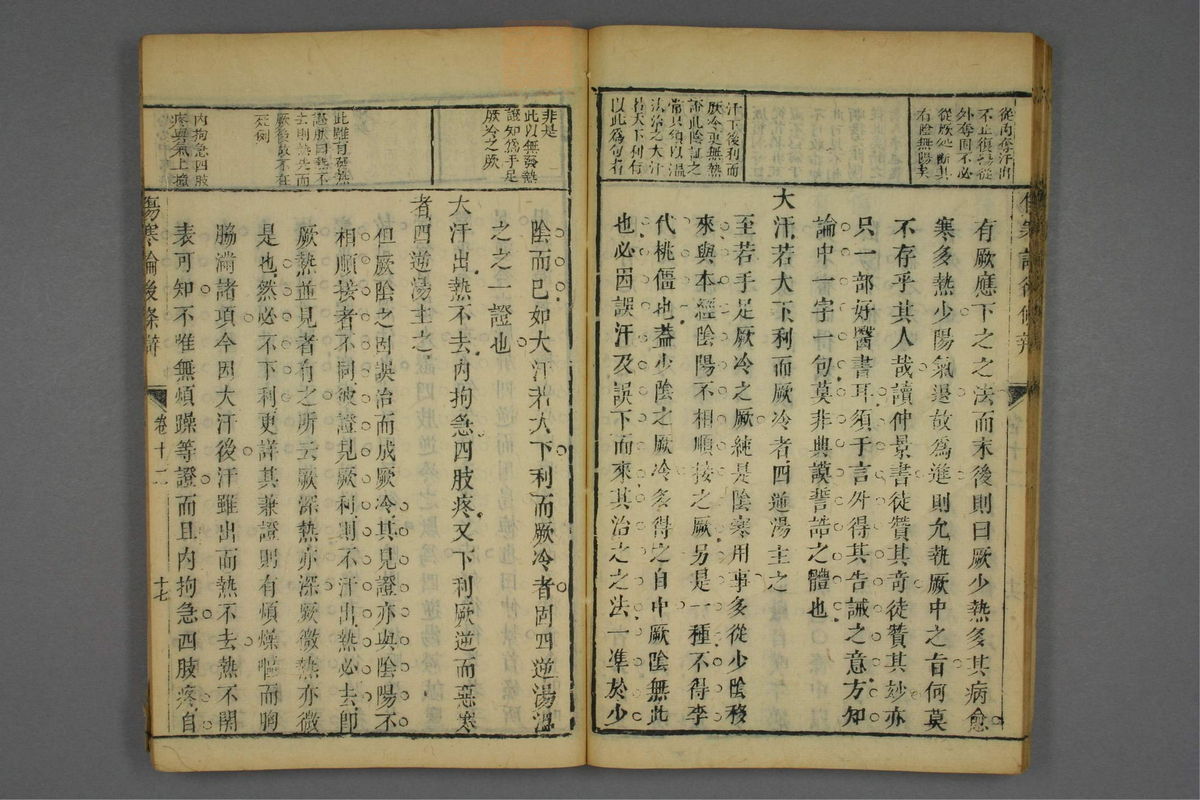 從內奪汗出
不止復
外奪固不必
從厥處斷其
有陰無陽矣
汗下後利而
厥冷更無熱
證此陰証之
常只須以溫
法治之大汗
若大下利有
以此為句者
有厥應下之之法而末後則曰厥少熱多其病愈
寒多熱少陽氣退故為進則允執厥中之旨何莫
不存乎其人哉讀仲景書徒贊其奇徒贊其妙亦
只一部好醫書耳須于言外得其告誡之意方知
論中一字一句莫非典謨誓誥之體也
大汗若大下利而厥冷者四逆湯主之
至若手足厥冷之厥純是陰寒用事多從少陰移
來與本經陰陽不相順接之厥另是一種不得李
代桃僵也蓋少陰之厥冷多得之自中厥陰無此
也必因誤汗及誤下而來其治之之法一準於少
非是
此以無發熱
證知為手足
厥冷之厥
此雖有發熱
證然曰熱不
去則熱先而
厥後故不在
死例
內拘急四肢
疼與氣上撞
陰而已如大汗若大下利而厥冷者固四逆湯溫
之之一證也
大汗出熱不去內拘急四肢疼又下利厥逆而惡寒
者四逆湯主之
但厥陰之因誤治而成厥冷其見證亦與陰陽不
相順接者不同彼證見厥利則不汗出熱必去即
厥熱並見者有之所云厥深熱亦深厥微熱亦微
是也然必不下利更詳其兼證則有煩燥嘔而胸
脇滿諸項今因大汗後汗雖出而熱不去熱不關
表可知不唯無煩躁等證而且內拘急四肢疼自
傷寒論後條辯
卷十二
十七